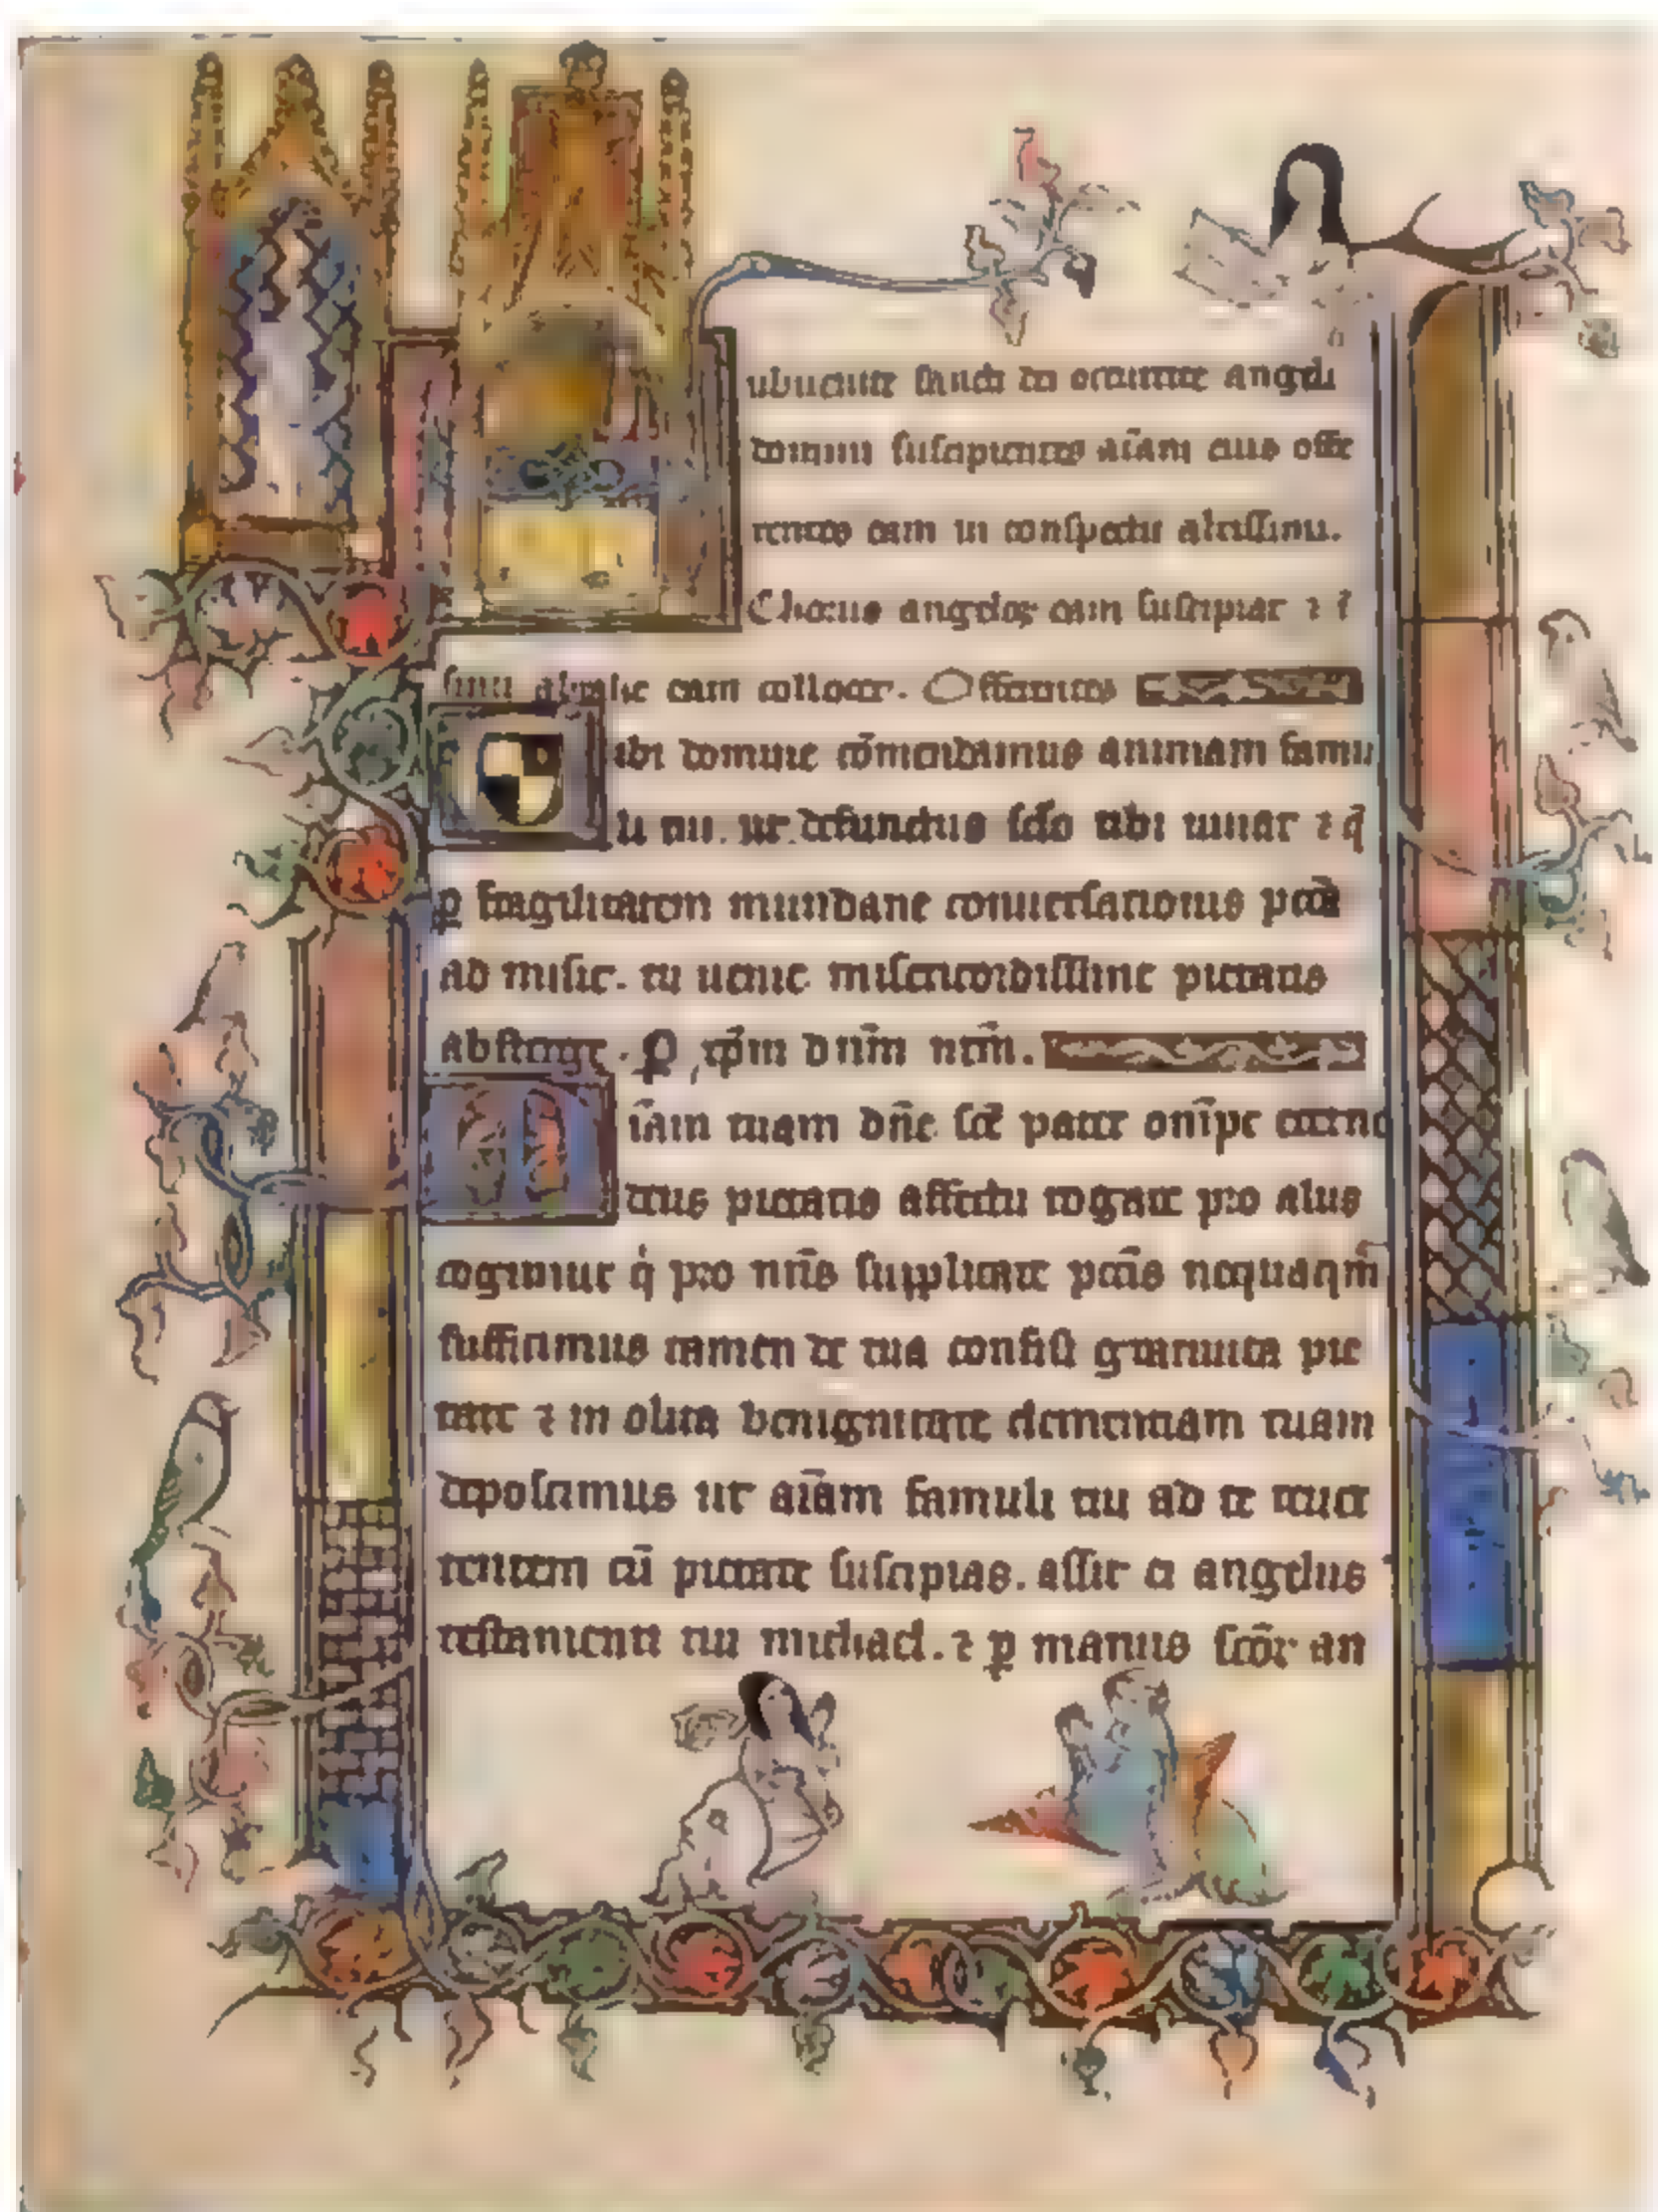 ubuenite sancti dei occurrite angeli
domini suscipientes aīam eius offe
rentes eam in conspectu altissimi.
Chorus angeloꝝ eam suscipiat ⁊ ī
sinu abrahe eam collocet. Offerentes
ibi domine cōmendamus animam famu
li tui. ut defunctus sclo tibi uiuat ⁊ q̄
ꝑ fragilitatem mundane conuersationis pctā
ad misit. tu uenie misericordissime pietatis
absterge. P xp̄m dnm̄ nrm̄.
iām tuam dn̄e sctē pater onīps eterne
deus pietatis affectu rogare pro aliis
cogimur q̇ pro nrīs supplicare pctīs nequaqm̄
sufficimus tamen de tua confisi gratuita pie
tate ⁊ in olita benignitate clementiam tuam
deposcimus ut aīam famuli tui ad te reuer
tentem cū pietate suscipias. assit ei angelus
testamenti tui michael. ⁊ ꝑ manus scōr an